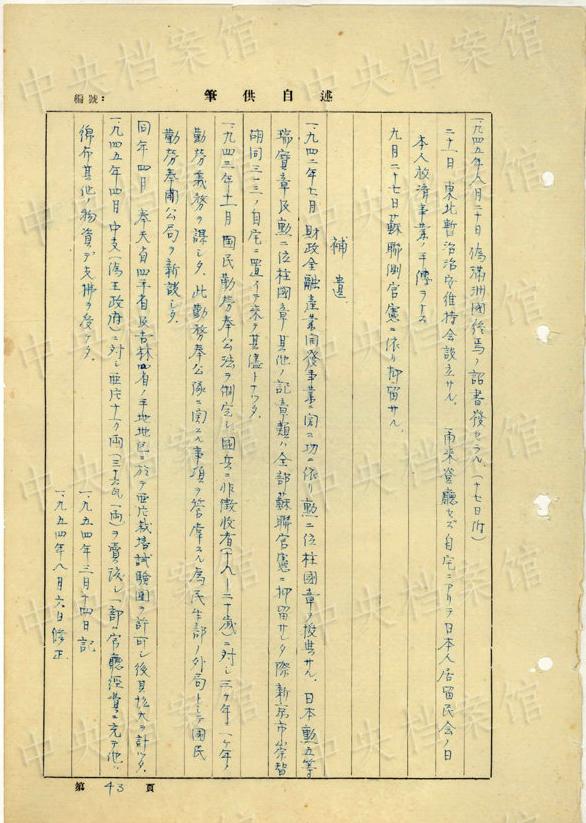 編號：
述自供筆
一九四五年八月二十日 偽滿洲國終焉ノ詔書發セラル。（十七日附）
二十一日 東北暫治治安維持会設立サル。 爾來登廳セズ自宅ニアリテ日本人居留民会ノ日
本人救濟事業ノ手傳ヲナス
九月二十七日 蘇聯側官憲ニ依リ抑留サル。
補遺
一九四二年七月 財政金融産業開發事業ニ関スル功ニ依リ勲二位柱國章ヲ授與サル。日本勲五等
瑞寶章及勲二位柱國章其他ノ記章類ハ全部蘇聯官憲ニ抑留サレタ際新京市崇智
胡同三三三ノ自宅ニ置イテ來タ其儘トナッタ。
一九四二年十一月 國民勤勞奉公法ヲ制定シ國兵ニ非徴收者（十八—二十歳）ニ対シ三ケ年ニ一ケ年ノ
勤勞義務ヲ課シタ。此勤勞奉公隊ニ関スル事項ヲ管掌スル為民生部ノ外局トシテ國民
勤勞奉公局ヲ新設シタ。
同年四月 奉天省四平省及吉林省ノ平地地区ニ於テ阿片栽培試驗圃ヲ許可シ後其拡大ヲ計ッタ。
一九四五年四月 中支（偽王政府）ニ対シ阿片十一万両（三十六瓦一両）ヲ賣渡シ一部ハ官廳經費ニ充テ他ハ
綿布其他ノ物資デ支拂ヲ受ケタ。
一九五四年三月十四日記
一九五四年八月六日修正
第 43 頁
中央档案馆